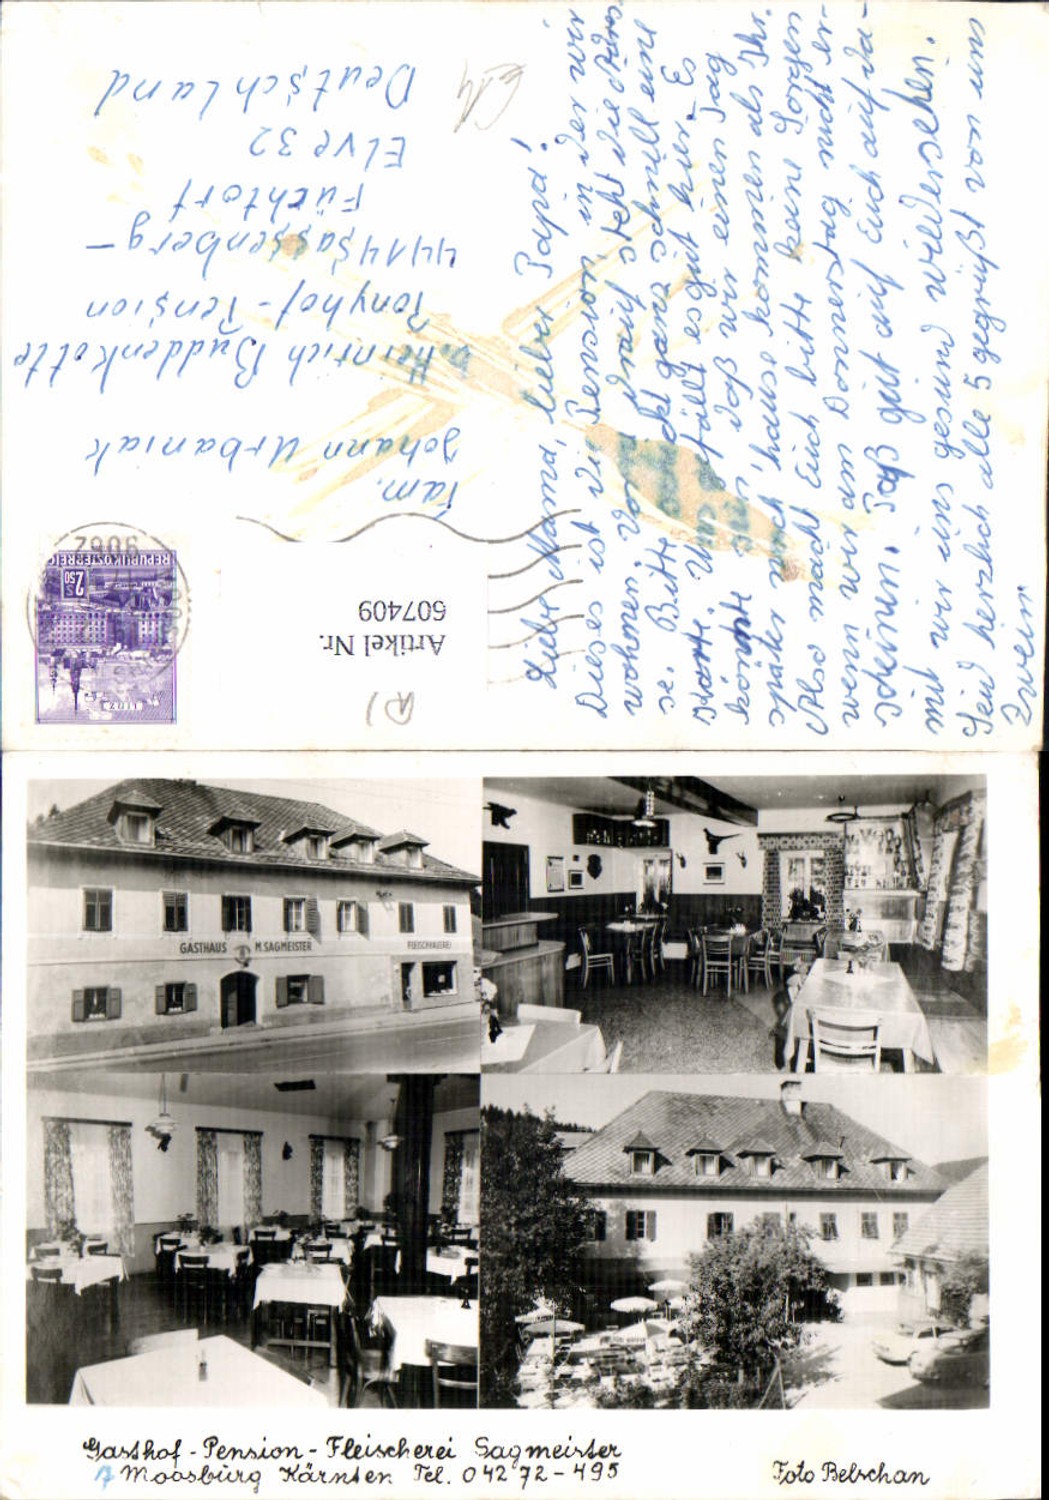 Fam.
Johann Urbaniak
b. Heinrich Buddenkotte
Ponyhof-Pension
4414 Sassenberg-
Füchtorf
Elve 32
Deutschland
REPUBLIK ÖSTERREICH
2.50
S
LINZ
9062
Artikel Nr.
607409
Liebe Mama, lieber Papa!
Dieses ist die Pension, in der wir
wohnen. Und drauf steht die Adres-
se. Bitte schreibt ganz schnell eine
Karte. Uns gefällt es gut hier. Es
könnte sein, daß wir einen Tag
später nach hause kommen als Ihr.
Also macht Euch bitte keine Sorgen
wenn wir am Donnerstag nicht er-
scheinen. Paß gut auf Euch auf da-
mit wir uns gesund wiedersehen.
Seid herzlich alle 5 gegrüßt von uns
Zweien
GASTHAUS M. SAGMEISTER
FLEISCHHAUEREI
Gasthof-Pension-Fleischerei Sagmeister
A Moosburg Kärnten Tel. 04272-495
Foto Belschan